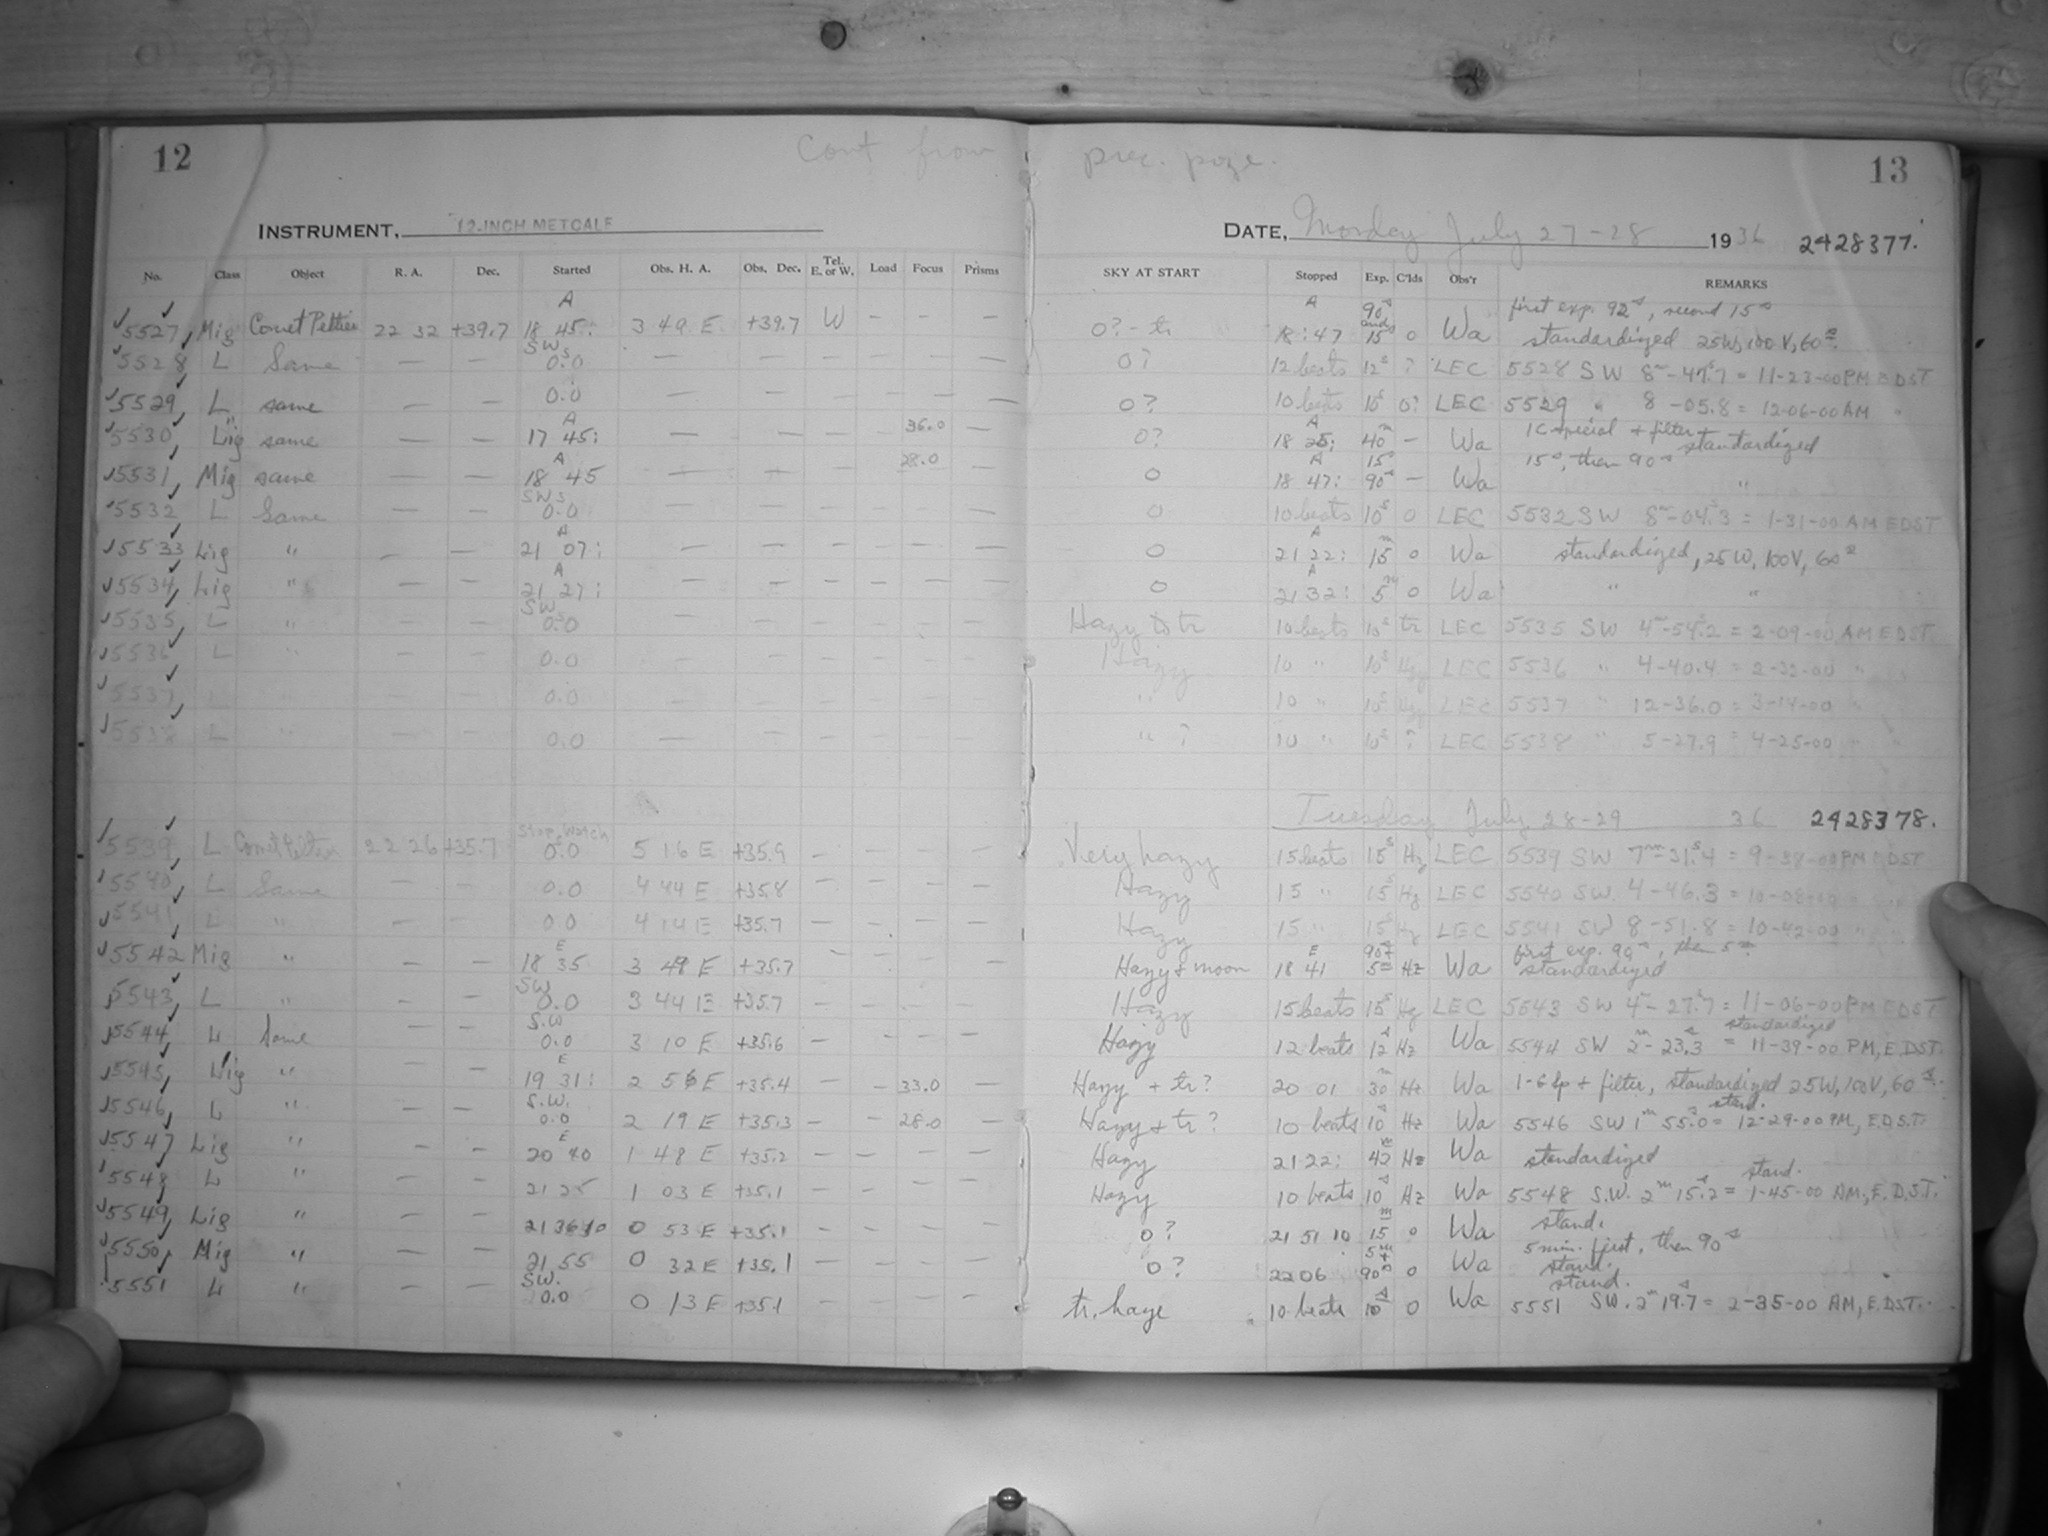 12
Cont from prec. page.
13
INSTRUMENT, 12-INCH METCALF
DATE, Monday July 27-28 1936 2428377.
No. Class Object R. A. Dec. Started Obs. H. A. Obs. Dec. Tel. E. or W. Load Focus Prisms SKY AT START Stopped Exp. C'lds Obs'r REMARKS
5527 Mig Comet Peltier 22 32 +39.7 A 18 45: 3 49 E +39.7 W - - - 0? - tr A 18:47 90s and 15s 0 Wa first exp. 92s, second 15s standardized 25W, 100V, 60s.
5528 L Same — — SW 0.0s — — — — — — 0? 12 beats 12s ? LEC 5528 SW 8m-47s.7 = 11-23-00 PM EDST
5529 L same — — 0.0 — — — — — — 0? 10 beats 10s 0? LEC 5529 " 8 -05.8 = 12-06-00 AM "
5530 Lig same — — A 17 45: — — — — 36.0 — 0? A 18 25: 40m — Wa 1C special + filter standardized
5531 Mig same — — A 18 45 — — — — 28.0 — 0 A 18 47: 15s 90s — Wa 15s, then 90s "
5532 L Same — — SW 0.0s — — — — — — 0 10 beats 10s 0 LEC 5532 SW 8m-04s.3 = 1-31-00 AM EDST
5533 Lig " — — A 21 07: — — — — — — 0 A 21 22: 15m 0 Wa standardized, 25W, 100V, 60s
5534 Lig " — — A 21 27: — — — — — — 0 A 21 32: 5m 0 Wa " "
5535 L " — — SW 0.0s — — — — — — Hazy to tr 10 beats 10s tr LEC 5535 SW 4m-54s.2 = 2-09-00 AM EDST.
5536 L " — — 0.0 — — — — — — Hazy 10 " 10s Hzy LEC 5536 " 4-40.4 = 2-32-00 "
5537 L " — — 0.0 — — — — — — " 10 " 10s Hzy LEC 5537 " 12-36.0 = 3-14-00 "
5538 L " — — 0.0 — — — — — — " ? 10 " 10s ? LEC 5538 " 5-27.9 = 4-25-00 "
Tuesday July 28-29 36 2428378.
5539 L Comet Peltier 22 26 +35.7 Stop Watch 0.0 5 16 E +35.9 - - - - Very hazy 15 beats 15s Hz LEC 5539 SW 7m-31s.4 = 9-38-00 PM EDST
5540 L Same — — 0.0 4 44 E +35.8 - - - - Hazy 15 " 15s Hz LEC 5540 SW. 4-46.3 = 10-08-00 "
5541 L " — — 0.0 4 14 E +35.7 - - - - Hazy 15 " 15s Hz LEC 5541 SW 8-51.8 = 10-42-00 "
5542 Mig " E 18 35 3 49 E +35.7 - - - - Hazy & moon E 18 41 90s 5m Hz Wa first exp. 90s, then 5m. standardized
5543 L " — — SW 0.0 3 44 E +35.7 - - - - Hazy 15 beats 15s Hz LEC 5543 SW 4m-27s.7 = 11-06-00 PM EDST
5544 L Same — — S.W 0.0 3 10 E +35.6 - - - - Hazy 12 beats 12s Hz Wa 5544 SW 2m-23s.3 = 11-39-00 PM, E.DST. standardized
5545 Lig " E 19 31: 2 56 E +35.4 - - 33.0 - Hazy + tr? 20 01 30m Hz Wa 1-6 sp + filter, standardized 25W, 100V, 60s.
5546 L " — — S.W. 0.0 2 19 E +35.3 - - 28.0 Hazy & tr? 10 beats 10s Hz Wa 5546 SW 1m 55s.0 = 12-29-00 PM, E.D.S.T. stand.
5547 Lig " — — E 20 40 1 48 E +35.2 - - - - Hazy 21 22: 42m Hz Wa standardized
5548 L " — — 21 25 1 03 E +35.1 - - - - Hazy 10 beats 10s Hz Wa 5548 S.W. 2m 15s.2 = 1-45-00 AM., E.D.S.T. stand.
5549 Lig " — — 21 36 10 0 53 E +35.1 - - - - 0? 21 51 10 15m 0 Wa stand.
5550 Mig " — — 21 55 0 32 E +35.1 - - - - 0? 22 06 5m + 90s 0 Wa 5 min. first, then 90s stand.
5551 L " — — SW. 0.0 0 13 E +35.1 - - - - tr. haze 10 beats 10s 0 Wa 5551 SW. 2m 19s.7 = 2-35-00 AM, E.DST. stand.